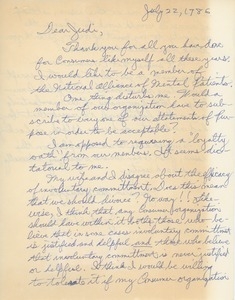 July 22, 1986
Dear Judi,
Thank you for all you have done
for Consumers like myself all these years.
I would like to be a member of
the National Alliance of Mental Patients.
One thing disturbs me. Would a
member of our organization have to sub-
scribe to every one of our Statements of Pur-
pose in order to be acceptable?
I am opposed to requiring a "loyalty
oath" from our members. It seems dicta-
torial to me.
My wife and I disagree about the efficacy
of involuntary commitment. Does this mean
that we should divorce? No way!
I think that any Consumer organization
should have within it both those who be-
lieve that in some cases involuntary commitment
is justified and helpful and those who believe
that involuntary commitment is never justified
or helpful. I think I would be willing
to tolerate it if my Consumer organization